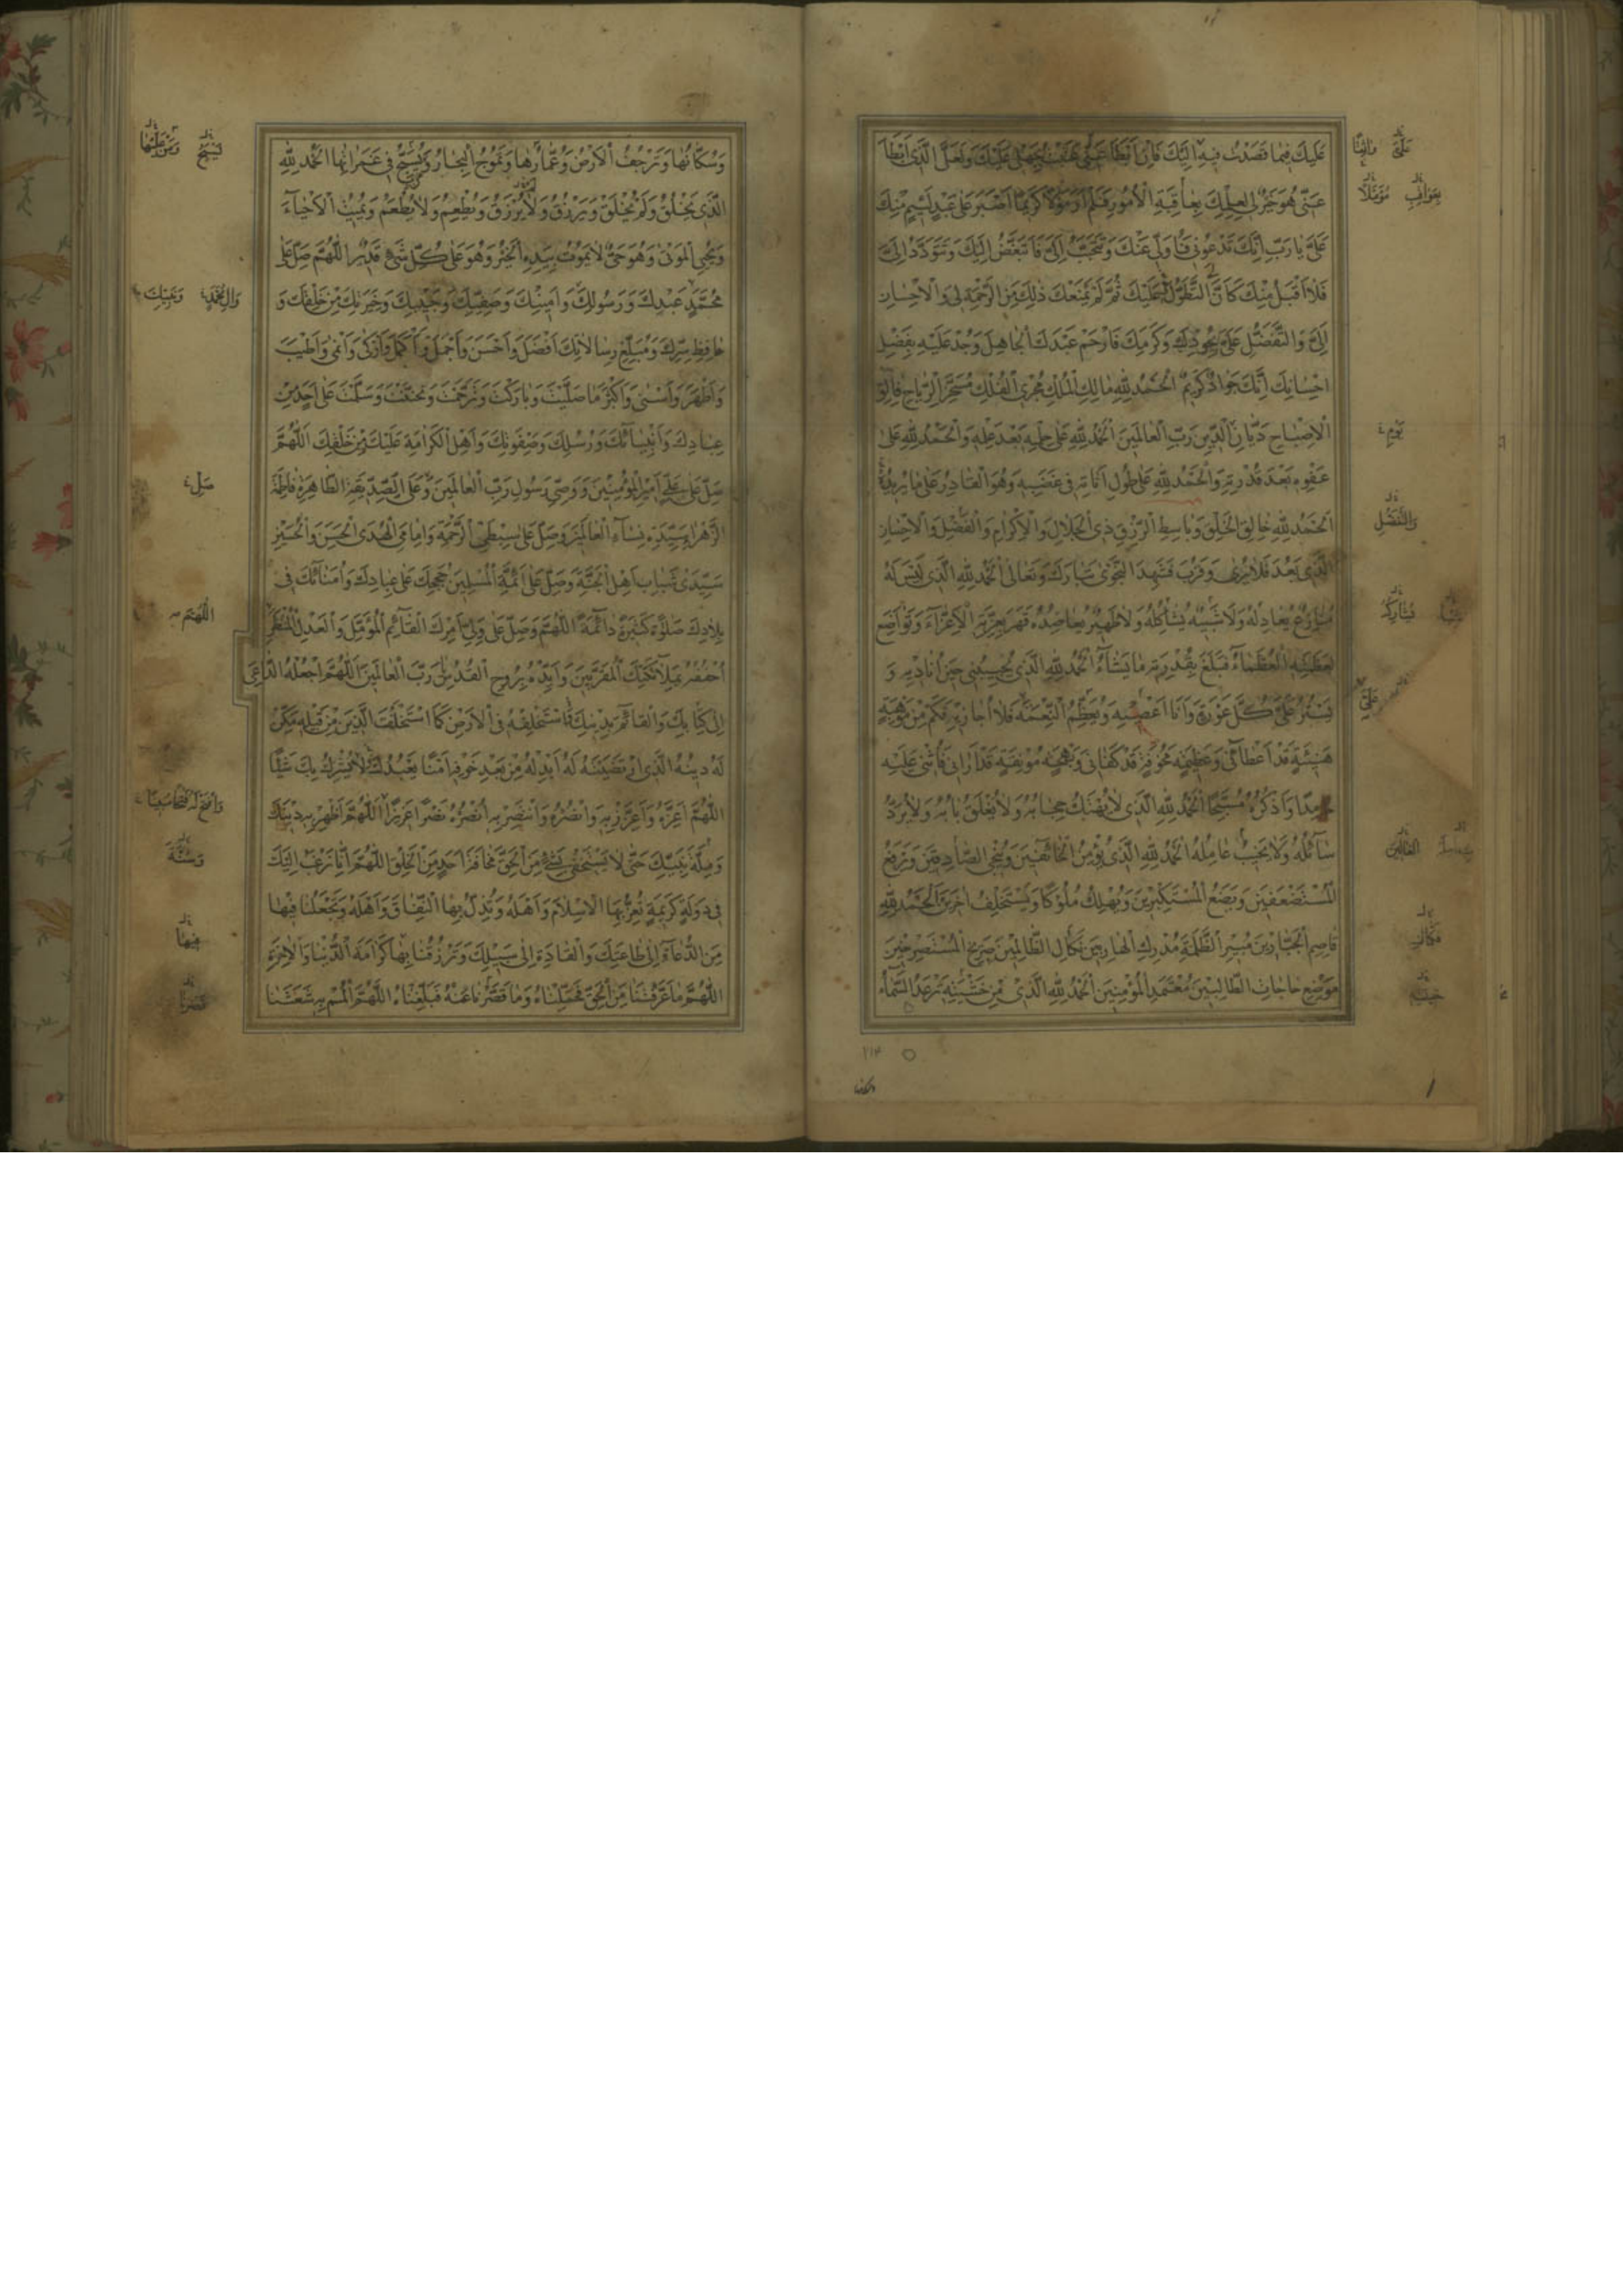 عَلَيْكَ فِيمَا قَصَدْتُ فِيهِ إِلَيْكَ فَإِنْ أَبْطَأَ عَنِّي عَتَبْتُ بِجَهْلِي عَلَيْكَ وَلَعَلَّ الَّذِي أَبْطَأَ
عَنِّي هُوَ خَيْرٌ لِي لِعِلْمِكَ بِعَاقِبَةِ الْأُمُورِ فَلَمْ أَرَ مَوْلًا كَرِيمًا أَصْبَرَ عَلَى عَبْدٍ لَئِيمٍ مِنْكَ
عَلَيَّ يَا رَبِّ إِنَّكَ تَدْعُونِي فَأُوَلِّي عَنْكَ وَتَتَحَبَّبُ إِلَيَّ فَأَتَبَغَّضُ إِلَيْكَ وَتَتَوَدَّدُ إِلَيَّ
فَلَا أَقْبَلُ مِنْكَ كَأَنَّ التَّطَوُّلَ لِي عَلَيْكَ ثُمَّ لَمْ يَمْنَعْكَ ذَلِكَ مِنَ الرَّحْمَةِ لِي وَالْإِحْسَانِ
إِلَيَّ وَالتَّفَضُّلِ عَلَيَّ بِجُودِكَ وَكَرَمِكَ فَارْحَمْ عَبْدَكَ الْجَاهِلَ وَجُدْ عَلَيْهِ بِفَضْلِ
إِحْسَانِكَ إِنَّكَ جَوَادٌ كَرِيمٌ الْحَمْدُ لِلَّهِ مَالِكِ الْمُلْكِ مُجْرِي الْفُلْكِ مُسَخِّرِ الرِّيَاحِ فَالِقِ
الْإِصْبَاحِ دَيَّانِ الدِّينِ رَبِّ الْعَالَمِينَ الْحَمْدُ لِلَّهِ عَلَى حِلْمِهِ بَعْدَ عِلْمِهِ وَالْحَمْدُ لِلَّهِ عَلَى
عَفْوِهِ بَعْدَ قُدْرَتِهِ وَالْحَمْدُ لِلَّهِ عَلَى طُولِ أَنَاتِهِ فِي غَضَبِهِ وَهُوَ الْقَادِرُ عَلَى مَا يُرِيدُهُ
الْحَمْدُ لِلَّهِ خَالِقِ الْخَلْقِ وَبَاسِطِ الرِّزْقِ ذِي الْجَلَالِ وَالْإِكْرَامِ وَالْفَضْلِ وَالْإِحْسَانِ
الَّذِي بَعُدَ فَلَا يُرَى وَقَرُبَ فَشَهِدَ النَّجْوَى تَبَارَكَ وَتَعَالَى الْحَمْدُ لِلَّهِ الَّذِي لَيْسَ لَهُ
مُنَازِعٌ يُعَادِلُهُ وَلَا شَبِيهٌ يُشَاكِلُهُ وَلَا ظَهِيرٌ يُعَاضِدُهُ قَهَرَ بِعِزَّتِهِ الْأَعِزَّاءَ وَتَوَاضَعَ
لِعَظَمَتِهِ الْعُظَمَاءُ فَبَلَغَ بِقُدْرَتِهِ مَا يَشَاءُ الْحَمْدُ لِلَّهِ الَّذِي يُجِيبُنِي حِينَ أُنَادِيهِ وَ
يَسْتُرُ عَلَيَّ كُلَّ عَوْرَةٍ وَأَنَا أَعْصِيهِ وَيُعَظِّمُ النِّعْمَةَ فَلَا أُجَازِيهِ فَكَمْ مِنْ مَوْهِبَةٍ
هَنِيئَةٍ قَدْ أَعْطَانِي وَعَظِيمَةٍ مَخُوفَةٍ قَدْ كَفَانِي وَبَهْجَةٍ مُونِقَةٍ قَدْ أَرَانِي فَأُثْنِي عَلَيْهِ
حَامِدًا وَأَذْكُرُهُ مُسَبِّحًا الْحَمْدُ لِلَّهِ الَّذِي لَا يُهْتَكُ حِجَابُهُ وَلَا يُغْلَقُ بَابُهُ وَلَا يُرَدُّ
سَائِلُهُ وَلَا يُخَيَّبُ عَامِلُهُ الْحَمْدُ لِلَّهِ الَّذِي يُؤْمِنُ الْخَائِفِينَ وَيُنَجِّي الصَّادِقِينَ وَيَرْفَعُ
الْمُسْتَضْعَفِينَ وَيَضَعُ الْمُسْتَكْبِرِينَ وَيُهْلِكُ مُلُوكًا وَيَسْتَخْلِفُ آخَرِينَ الْحَمْدُ لِلَّهِ
قَاصِمِ الْجَبَّارِينَ مُبِيرِ الظَّلَمَةِ مُدْرِكِ الْهَارِبِينَ نَكَالِ الظَّالِمِينَ صَرِيخِ الْمُسْتَصْرِخِينَ
مَوْضِعِ حَاجَاتِ الطَّالِبِينَ مُعْتَمَدِ الْمُؤْمِنِينَ الْحَمْدُ لِلَّهِ الَّذِي مِنْ خَشْيَتِهِ تَرْعَدُ السَّمَاءُ
عَلَيَّ
بِعَوَاقِبِ مُؤَمَّلًا
يَوْمِ
وَالتَّفَضُّلِ
يُشَارِكُهُ
عَلَيَّ
نَكَالِ
٢١٤
وَسُكَّانُهَا وَتَرْجُفُ الْأَرْضُ وَعُمَّارُهَا وَتَمُوجُ الْبِحَارُ وَيُسَبِّحُ فِي غَمَرَاتِهَا الْحَمْدُ لِلَّهِ
الَّذِي يَخْلُقُ وَلَمْ يُخْلَقْ وَيَرْزُقُ وَلَا يُرْزَقُ وَيُطْعِمُ وَلَا يُطْعَمُ وَيُمِيتُ الْأَحْيَاءَ
وَيُحْيِي الْمَوْتَى وَهُوَ حَيٌّ لَا يَمُوتُ بِيَدِهِ الْخَيْرُ وَهُوَ عَلَى كُلِّ شَيْءٍ قَدِيرٌ اللَّهُمَّ صَلِّ عَلَى
مُحَمَّدٍ عَبْدِكَ وَرَسُولِكَ وَأَمِينِكَ وَصَفِيِّكَ وَحَبِيبِكَ وَخِيَرَتِكَ مِنْ خَلْقِكَ وَ
حَافِظِ سِرِّكَ وَمُبَلِّغِ رِسَالَاتِكَ أَفْضَلَ وَأَحْسَنَ وَأَجْمَلَ وَأَكْمَلَ وَأَزْكَى وَأَنْمَى وَأَطْيَبَ
وَأَطْهَرَ وَأَسْنَى وَأَكْثَرَ مَا صَلَّيْتَ وَبَارَكْتَ وَتَرَحَّمْتَ وَتَحَنَّنْتَ وَسَلَّمْتَ عَلَى أَحَدٍ مِنْ
عِبَادِكَ وَأَنْبِيَائِكَ وَرُسُلِكَ وَصَفْوَتِكَ وَأَهْلِ الْكَرَامَةِ عَلَيْكَ مِنْ خَلْقِكَ اللَّهُمَّ
صَلِّ عَلَى عَلِيٍّ أَمِيرِ الْمُؤْمِنِينَ وَوَصِيِّ رَسُولِ رَبِّ الْعَالَمِينَ وَعَلَى الصِّدِّيقَةِ الطَّاهِرَةِ فَاطِمَةَ
الزَّهْرَاءِ سَيِّدَةِ نِسَاءِ الْعَالَمِينَ وَصَلِّ عَلَى سِبْطَيِ الرَّحْمَةِ وَإِمَامَيِ الْهُدَى الْحَسَنِ وَالْحُسَيْنِ
سَيِّدَيْ شَبَابِ أَهْلِ الْجَنَّةِ وَصَلِّ عَلَى أَئِمَّةِ الْمُسْلِمِينَ حُجَجِكَ عَلَى عِبَادِكَ وَأُمَنَائِكَ فِي
بِلَادِكَ صَلَوٰةً كَثِيرَةً دَائِمَةً اللَّهُمَّ وَصَلِّ عَلَى وَلِيِّ أَمْرِكَ الْقَائِمِ الْمُؤَمَّلِ وَالْعَدْلِ الْمُنْتَظَرِ
احْفُفْهُ بِمَلَائِكَتِكَ الْمُقَرَّبِينَ وَأَيِّدْهُ بِرُوحِ الْقُدُسِ يَا رَبَّ الْعَالَمِينَ اللَّهُمَّ اجْعَلْهُ الدَّاعِيَ
إِلَى كِتَابِكَ وَالْقَائِمَ بِدِينِكَ فَاسْتَخْلِفْهُ فِي الْأَرْضِ كَمَا اسْتَخْلَفْتَ الَّذِينَ مِنْ قَبْلِهِ مَكِّنْ
لَهُ دِينَهُ الَّذِي ارْتَضَيْتَهُ لَهُ أَبْدِلْهُ مِنْ بَعْدِ خَوْفِهِ أَمْنًا يَعْبُدُكَ لَا يُشْرِكُ بِكَ شَيْئًا
اللَّهُمَّ أَعِزَّهُ وَأَعْزِزْ بِهِ وَانْصُرْهُ وَانْتَصِرْ بِهِ انْصُرْهُ نَصْرًا عَزِيزًا اللَّهُمَّ أَظْهِرْ بِهِ دِينَكَ
وَمِلَّةَ نَبِيِّكَ حَتَّى لَا يَسْتَخْفِيَ بِشَيْءٍ مِنَ الْحَقِّ مَخَافَةَ أَحَدٍ مِنَ الْخَلْقِ اللَّهُمَّ إِنَّا نَرْغَبُ إِلَيْكَ
فِي دَوْلَةٍ كَرِيمَةٍ تُعِزُّ بِهَا الْإِسْلَامَ وَأَهْلَهُ وَتُذِلُّ بِهَا النِّفَاقَ وَأَهْلَهُ وَتَجْعَلُنَا فِيهَا
مِنَ الدُّعَاةِ إِلَى طَاعَتِكَ وَالْقَادَةِ إِلَى سَبِيلِكَ وَتَرْزُقُنَا بِهَا كَرَامَةَ الدُّنْيَا وَالْآخِرَةِ
اللَّهُمَّ مَا عَرَّفْتَنَا مِنَ الْحَقِّ فَحَمِّلْنَاهُ وَمَا قَصُرْنَا عَنْهُ فَبَلِّغْنَاهُ اللَّهُمَّ الْمُمْ بِهِ شَعَثَنَا
وَآلِ مُحَمَّدٍ
صَلِّ
اللَّهُمَّ
وَافْتَحْ لَهُ فَتْحًا
وَسُنَّةَ
فِيهَا